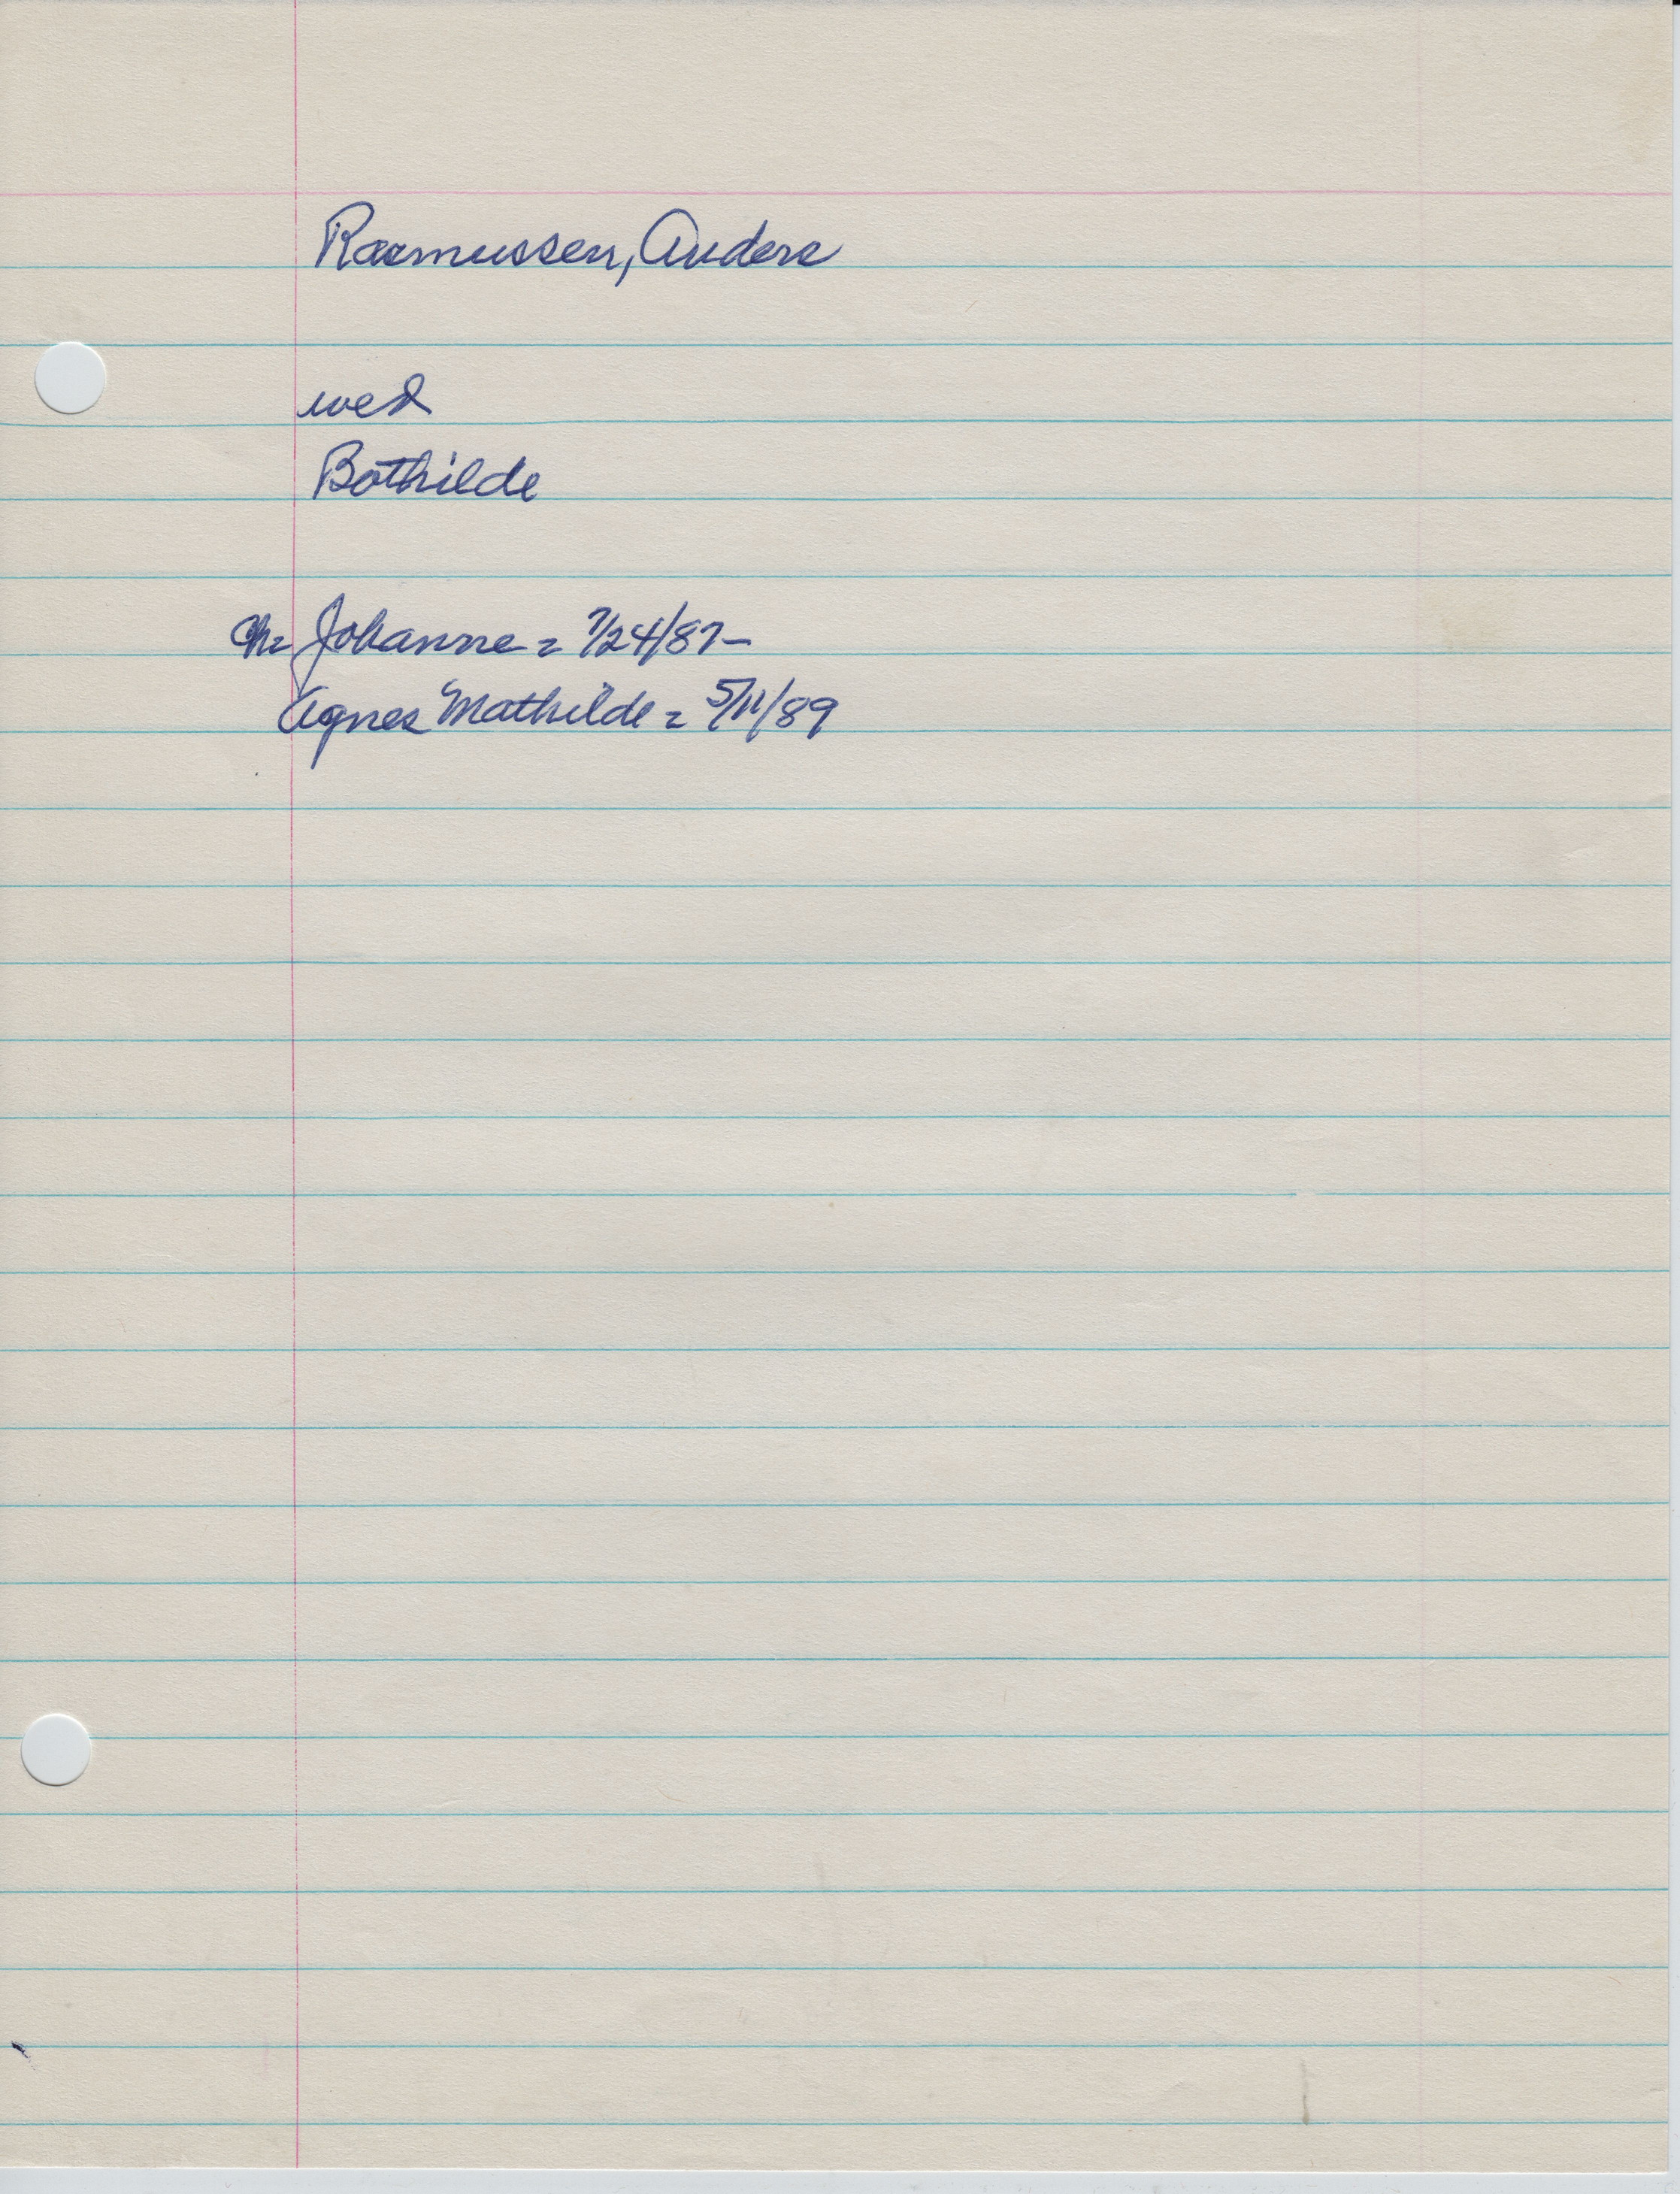 Rasmussen, Anders
wed
Bothilde
Ch= Johanne = 7/24/87-
Agnes Mathilde = 5/11/89